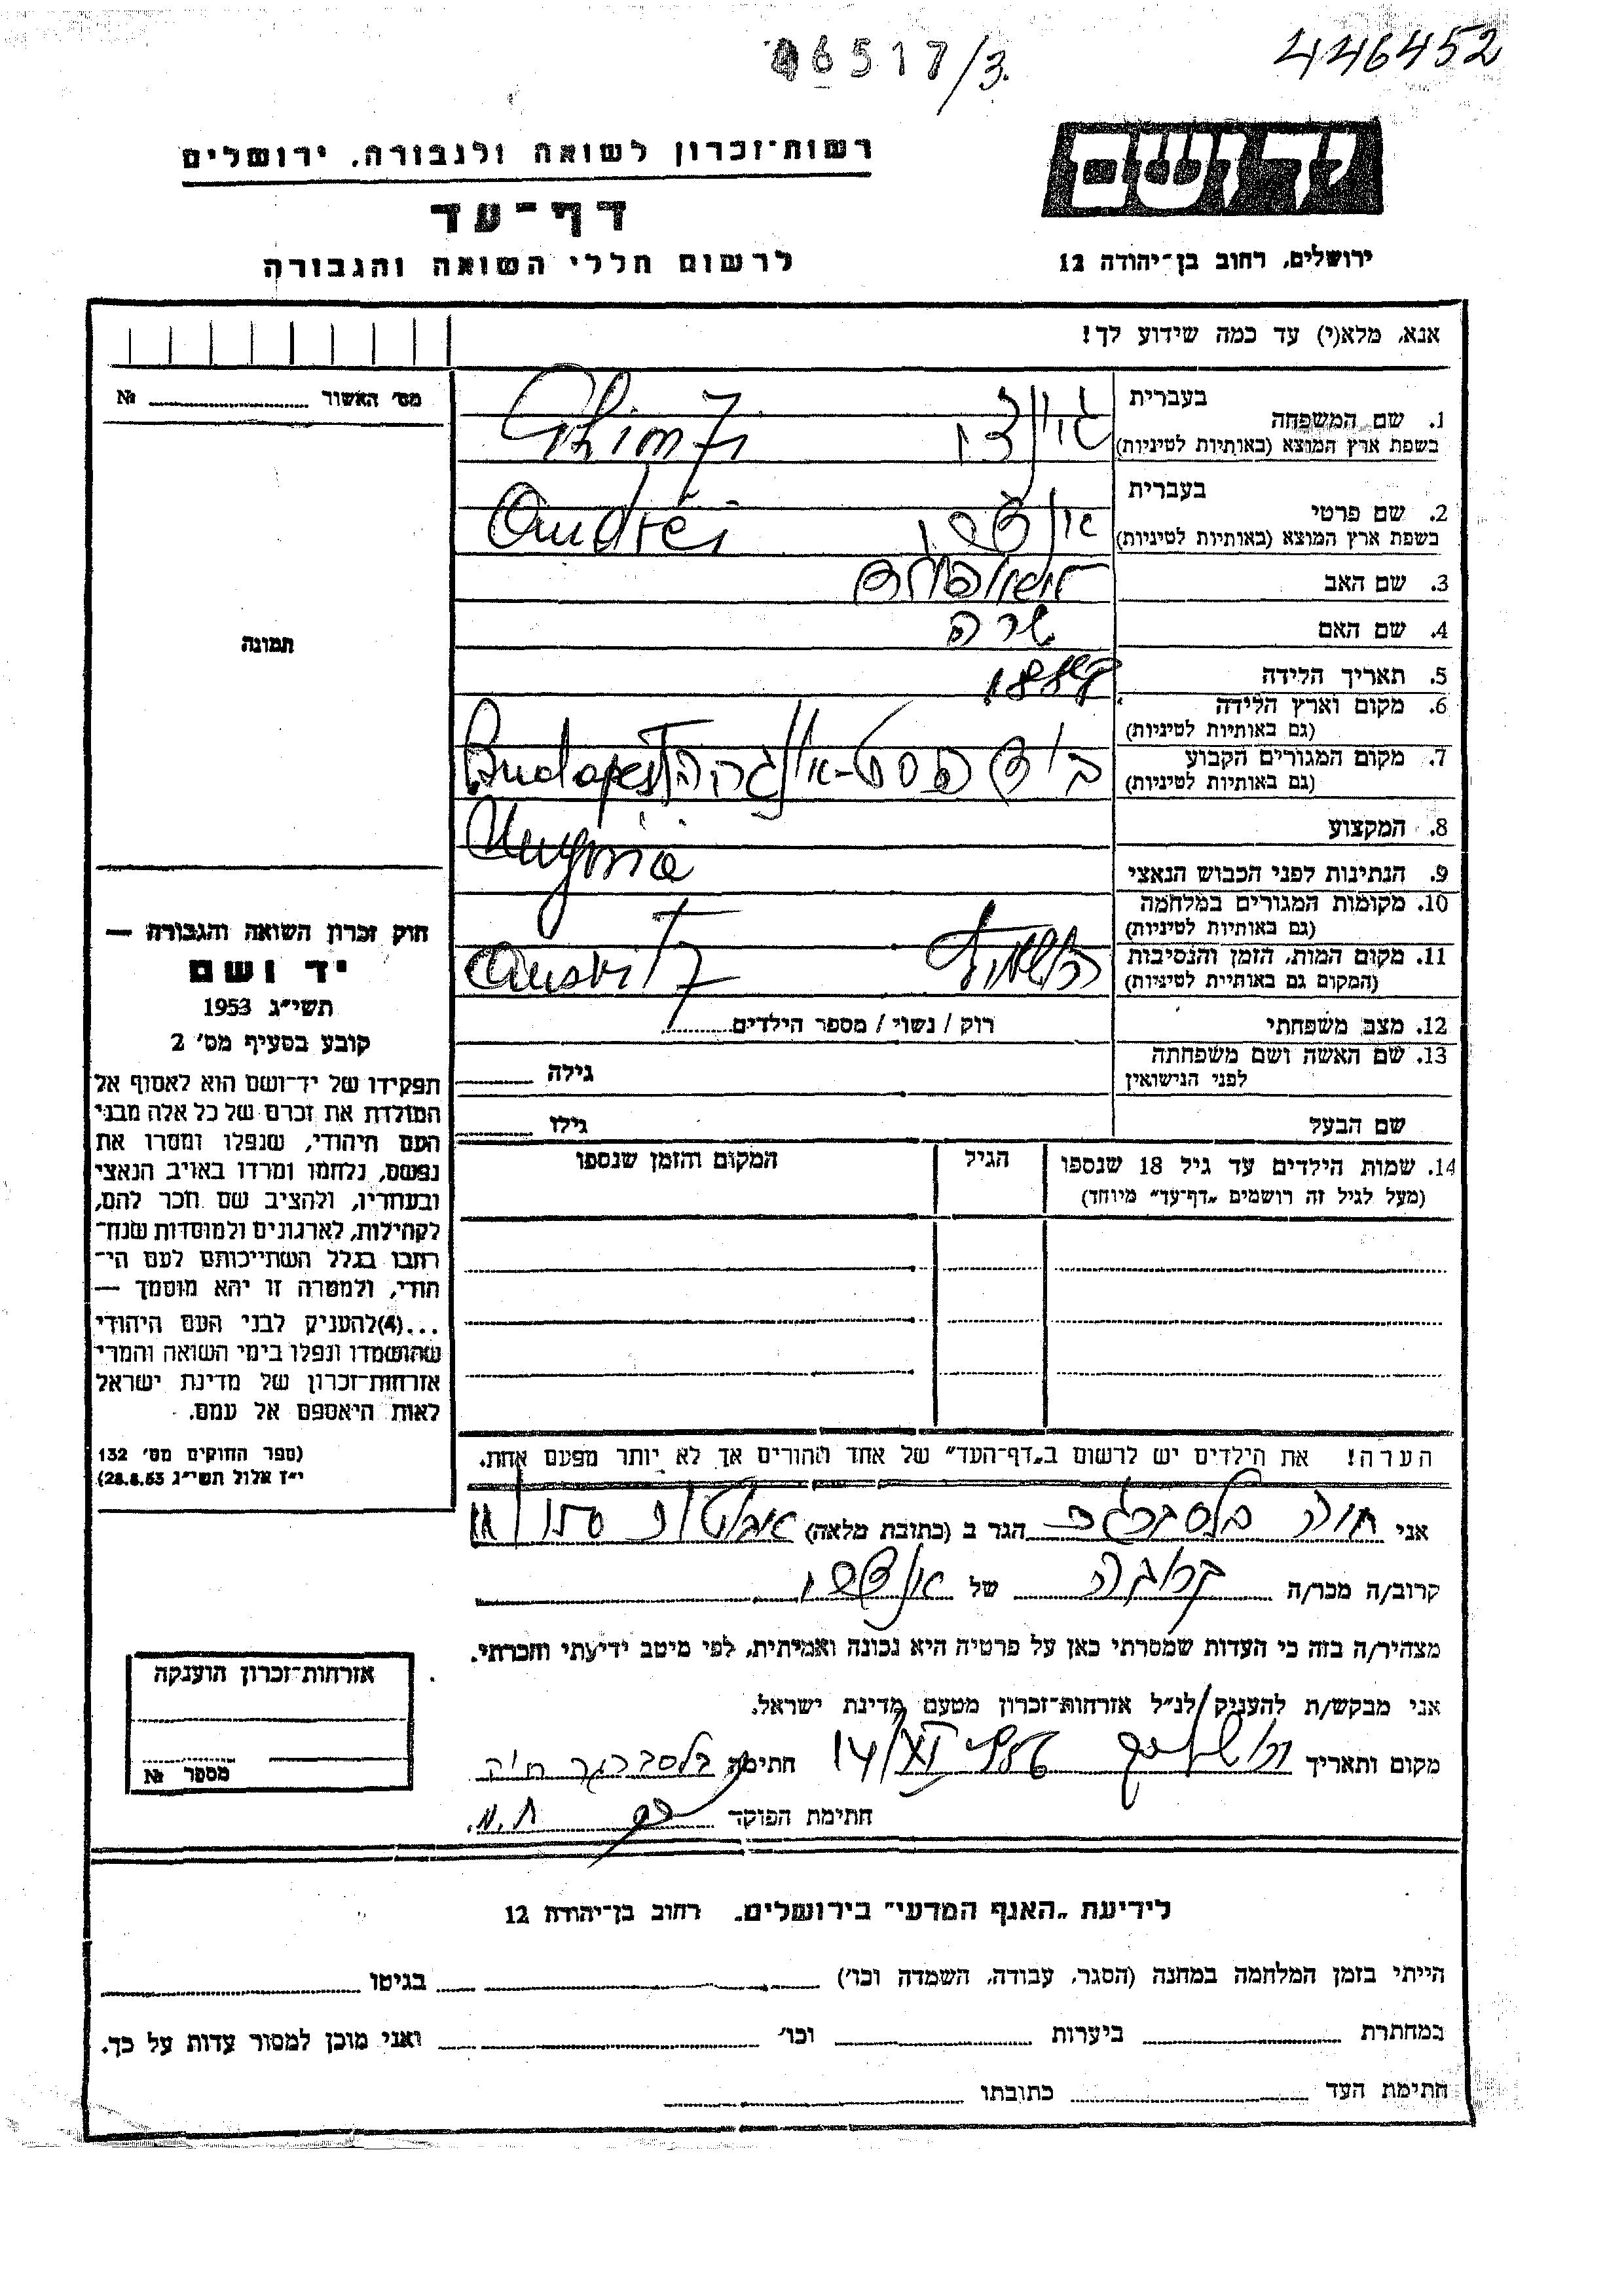 46517/3.
446452
רשות־זכרון לשואה ולגבורה, ירושלים
דף־עד
לרשום חללי השואה והגבורה
ירושלים, רחוב בן־יהודה 12
אנא, מלא(י) עד כמה שידוע לך!
מס׳ האשור № 
בעברית
1. שם המשפחה
בשפת ארץ המוצא (באותיות לטיניות)
בעברית
2. שם פרטי
בשפת ארץ המוצא (באותיות לטיניות)
Andréi
3. שם האב
4. שם האם שרה
5. תאריך הלידה
6. מקום וארץ הלידה
(גם באותיות לטיניות)
7. מקום המגורים הקבוע
(גם באותיות לטיניות)
Budapest
8. המקצוע
9. הנתינות לפני הכבוש הנאצי
10. מקומות המגורים במלחמה
(גם באותיות לטיניות)
11. מקום המות, הזמן והנסיבות
(המקום גם באותיית לטיניות)
12. מצב משפחתי רוק / נשוי / מספר הילדים
13. שם האשה ושם משפחתה
לפני הנישואין גילה
שם הבעל גילו
תמונה
14. שמות הילדים עד גיל 18 שנספו הגיל המקום והזמן שנספו
(מעל לגיל זה רושמים „דף־עד״ מיוחד)
חוק זכרון השואה והגבורה —
יד ושם
תשי״ג 1953
קובע בסעיף מס׳ 2
תפקידו של יד־ושם הוא לאסוף אל
המולדת את זכרם של כל אלה מבני
העם היהודי, שנפלו ומסרו את
נפשם, נלחמו ומרדו באויב הנאצי
ובעוזריו, ולהציב שם וזכר להם,
לקהילות, לארגונים ולמוסדות שנח־
רבו בגלל השתייכותם לעם הי־
הודי, ולמטרה זו יהא מוסמך —
...(4)להעניק לבני העם היהודי
שהושמדו ונפלו בימי השואה והמרי
אזרחות־זכרון של מדינת ישראל
לאות היאספם אל עמם.
(ספר החוקים מס׳ 132
י״ז אלול תשי״ג 28.8.53)
הערה! את הילדים יש לרשום ב„דף־העד״ של אחד ההורים אך לא יותר מפעם אחת.
אני חיה הגר ב (כתובת מלאה)
קרוב/ה מכר/ה של
מצהיר/ה בזה כי העדות שמסרתי כאן על פרטיה היא נכונה ואמיתית, לפי מיטב ידיעתי והכרתי.
אני מבקש/ת להעניק לנ״ל אזרחות־זכרון מטעם מדינת ישראל.
מקום ותאריך חתימה
חתימת הפוקד
אזרחות־זכרון הוענקה
מספר №
לידיעת „האגף המדעי״ בירושלים, רחוב בן־יהודה 12
הייתי בזמן המלחמה במחנה (הסגר, עבודה, השמדה וכו׳) בגיטו
במחתרת ביערות וכו׳ ואני מוכן למסור עדות על כך.
חתימת העד כתובתו